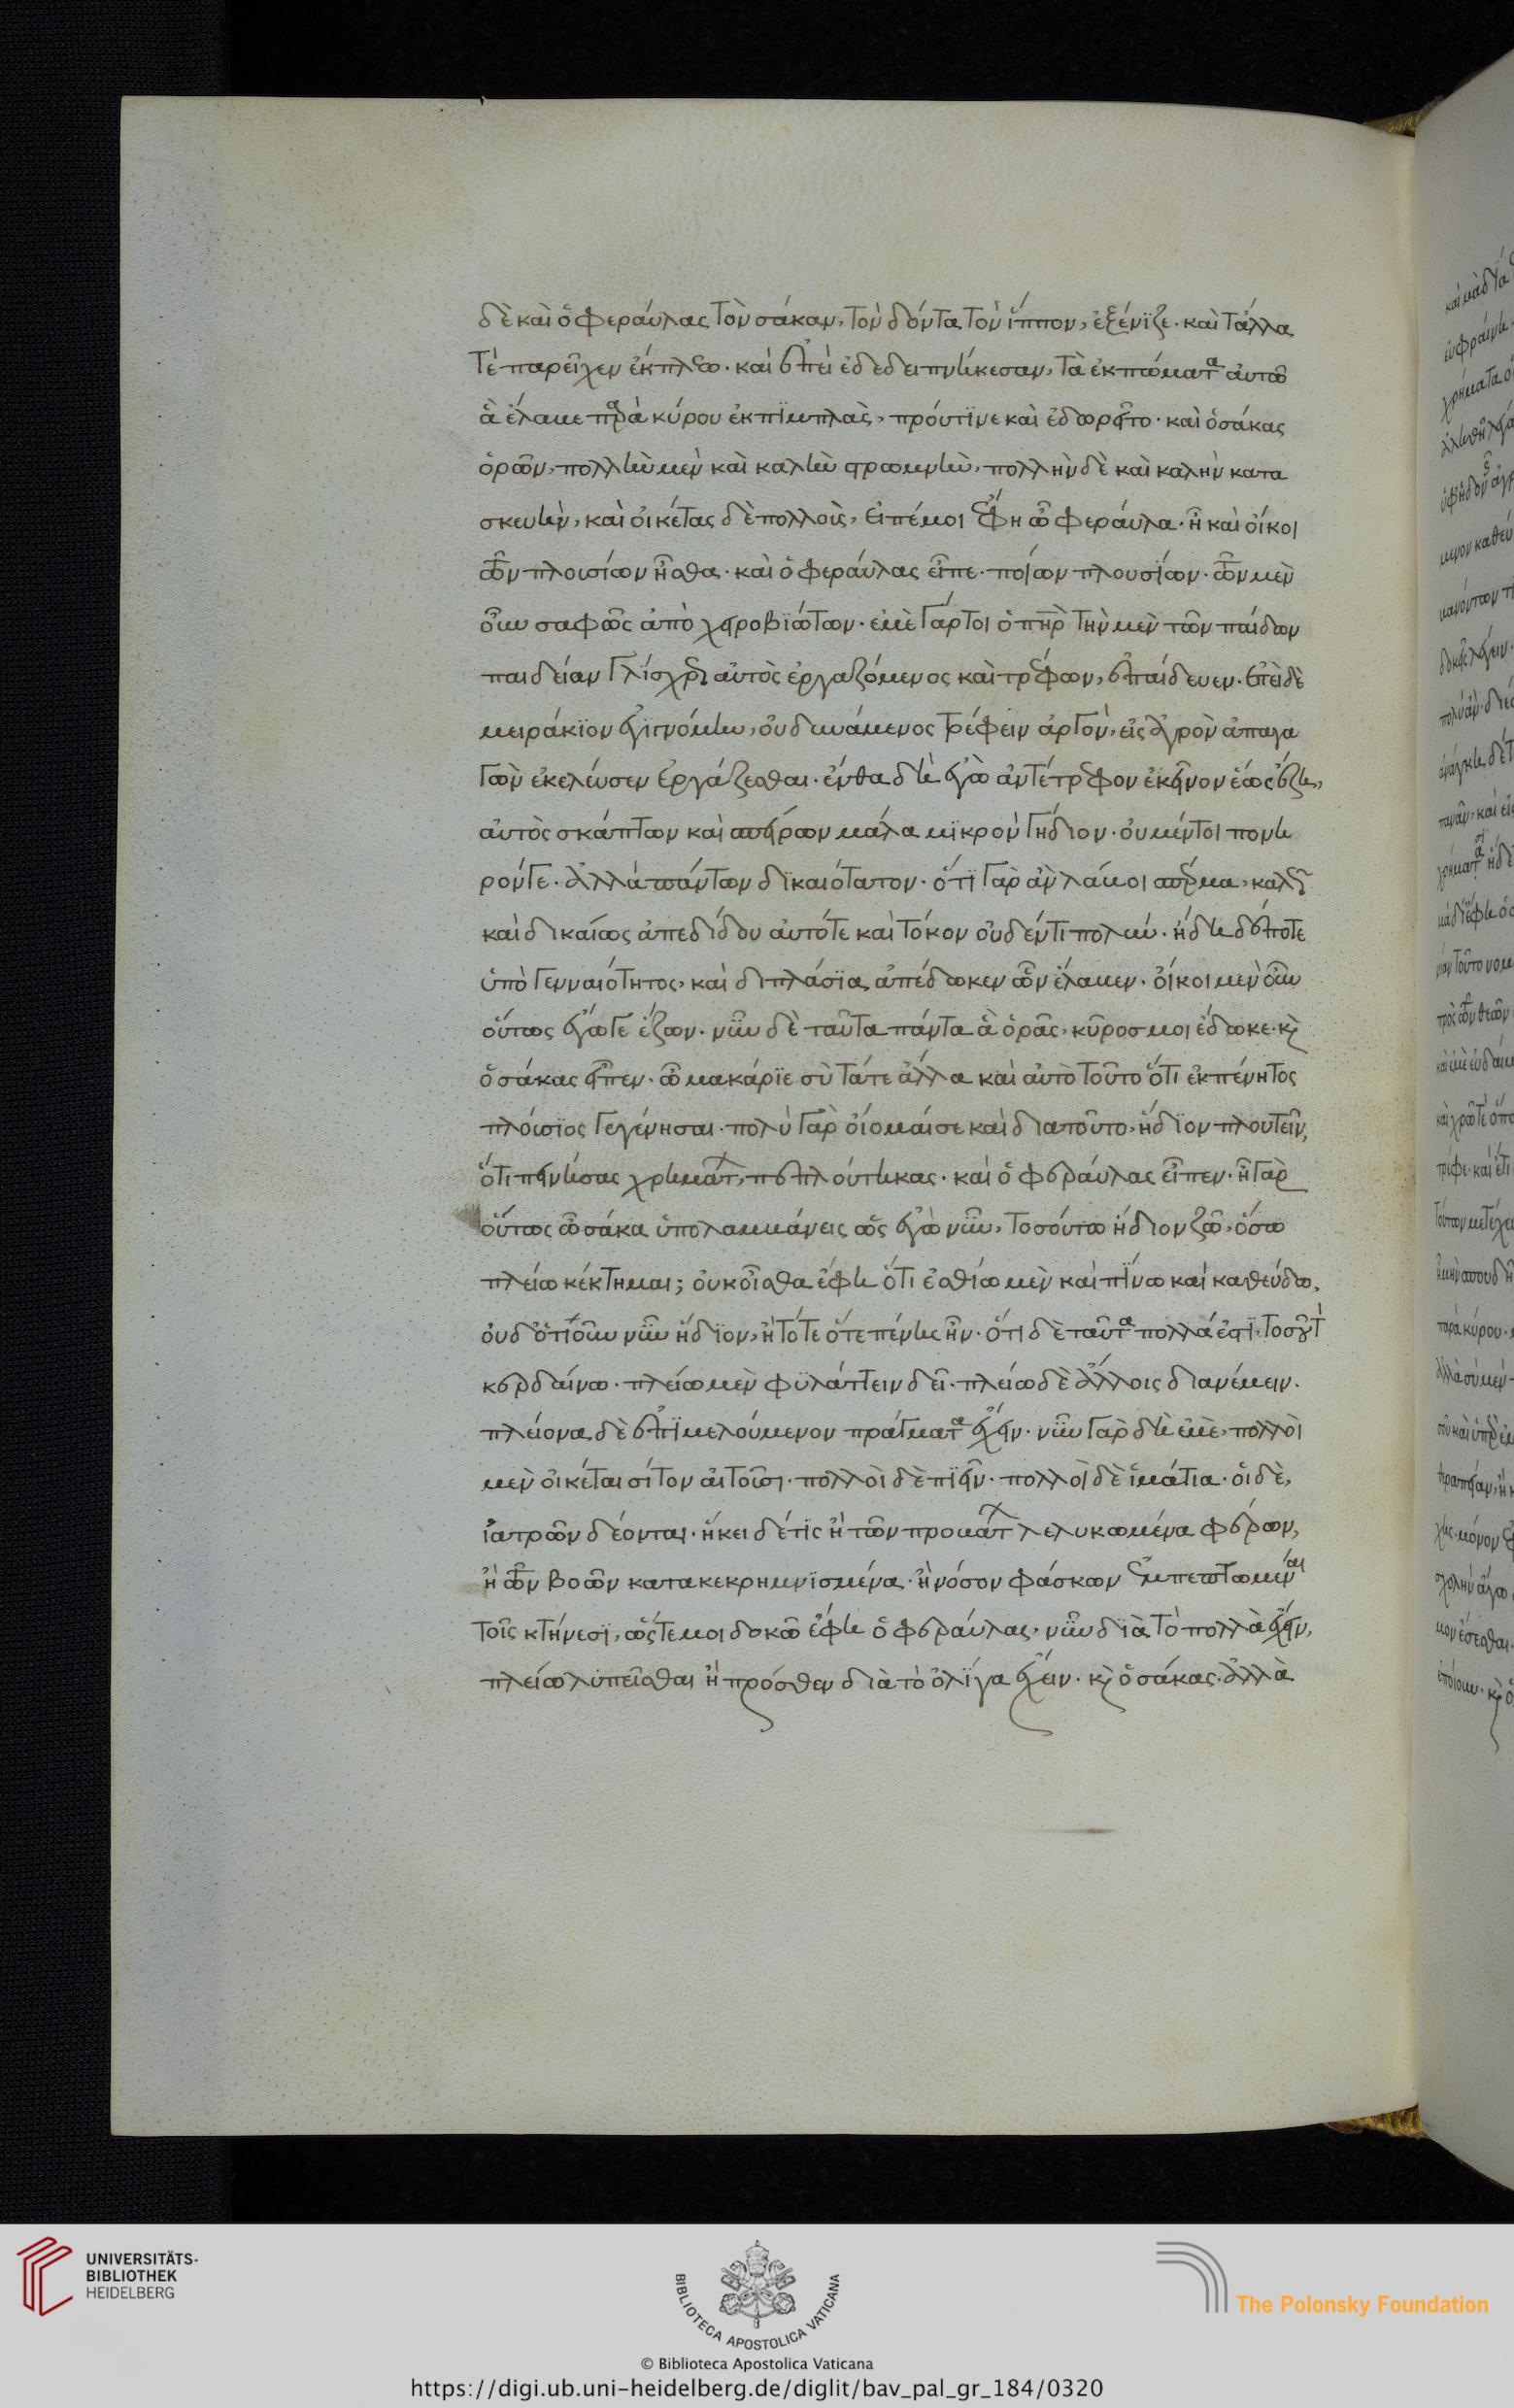 δὲ καὶ ὁ φεραύλας τὸν σάκαν, τὸν δόντα τὸν ἵππον, ἐξένϊζε· καὶ τἄλλα
τέ παρεῖχεν ἔκπλεω· καὶ ἐπεὶ ἐδεδειπνήκεσαν, τὰ ἐκπώματα αὐτῶ
ἃ ἔλαβε παρὰ κύρου ἐκπϊμπλὰς, πρόυπϊνε καὶ ἐδωρεῖτο· καὶ ὁ σάκας
ὁρῶν, πολλὴν μὲν καὶ καλὴν στρωμνὴν, πολλὴν δὲ καὶ καλὴν κατα
σκευὴν, καὶ οἰκέτας δὲ πολλοὺς, εἰπέ μοι ἔφη ὦ φεραύλα· ἦ καὶ οἴκοι
τῶν πλουσίων ἦσθα· καὶ ὁ φεραύλας εἶπε· ποίων πλουσΐων· τῶν μὲν
οὖν σαφῶς ἀπὸ χειροβϊώτων· ἐμὲ γάρ τοι ὁ πηρ τὴν μὲν τῶν παίδων
παιδείαν γλίσχρως αὐτὸς ἐργαζόμενος καὶ τρέφων, ἐπαίδευεν· ἐπεὶ δὲ
μειράκϊον ἐγϊγνόμην, οὐ δυνάμενος τρέφειν ἀργὸν, εἰς ἀγρὸν ἀπαγα
γὼν ἐκέλευσεν ἐργάζεσθαι· ἔνθα δὴ ἐγὼ ἀντέτρεφον ἐκεῖνον ἕως ἔζη,
αὐτὸς σκάπτων καὶ σπείρων μάλα μϊκρὸν γήδιον· οὐ μέντοι πονη
ρόν γε· ἀλλὰ πάντων δϊκαιότατον· ὅτϊ γὰρ ἂν λάβοι σπέρμα, καλῶς
καὶ δικαίως ἀπεδίδου αὐτό τε καὶ τόκον οὐδέν τι πολύν· ἤδη δέ ποτε
ὑπὸ γενναιότητος, καὶ διπλάσϊα ἀπέδωκεν ὧν ἔλαβεν· οἴκοι μὲν οὖν
οὕτως ἔγωγε ἔζων· νῦν δὲ ταῦτα πάντα ἃ ὁρᾶς, κῦρος μοι ἔδωκε· κὶ
ὁ σάκας εἶπεν· ὦ μακάρϊε σὺ τά τε ἄλλα καὶ αὐτὸ τοῦτο ὅτι ἐκ πένητος
πλούσϊος γεγένησαι· πολὺ γὰρ οἴομαί σε καὶ διατοῦτο, ἥδϊον πλουτεῖν,
ὅτι πεινήσας χρημάτων, πεπλούτηκας· καὶ ὁ φεραύλας εἶπεν· ἦ γὰρ
οὕτως ὦ σάκα ὑπολαμβάνεις ὡς ἐγὼ νῦν, τοσούτω ἥδιον ζῶ, ὅσω
πλείω κέκτημαι; οὐκ οἶσθα ἔφη ὅτι ἐσθίω μὲν καὶ πΐνω καὶ καθεύδω,
οὐδ ὁτιοῦν νῦν ἥδϊον, ἢ τότε ὅτε πένης ἦν· ὅτι δὲ ταῦτα πολλά ἐστϊ· τοσοῦτ
κερδαίνω· πλείω μὲν φϋλάττειν δεῖ· πλείω δὲ ἄλλοις διανέμειν·
πλείονα δὲ ἐπϊμελούμενον πράγματα ἔχειν· νῦν γὰρ δὴ ἐμὲ, πολλοὶ
μὲν οἰκέται σῖτον αἰτοῦσι· πολλοὶ δὲ πϊεῖν· πολλοὶ δὲ ἱμάτια· οἱ δὲ,
ἰατρῶν δέονται· ἥκει δέ τϊς ἢ τῶν προβάτων λελυκωμένα φέρων,
ἢ τῶν βοῶν κατακεκρημνϊσμένα· ἢ νόσον φάσκων ἐμπεπτωμέναι
τοῖς κτήνεσϊ, ὥστε μοι δοκῶ ἔφη ὁ φεραύλας, νῦν δϊὰ τὸ πολλὰ ἔχειν,
πλείω λυπεῖσθαι ἢ πρόσθεν διὰ τὸ ὀλΐγα ἔχειν· κὶ ὁ σάκας· ἀλλὰ
UNIVERSITÄTS-
BIBLIOTHEK
HEIDELBERG
BIBLIOTECA APOSTOLICA VATICANA
The Polonsky Foundation
© Biblioteca Apostolica Vaticana
https://digi.ub.uni-heidelberg.de/diglit/bav_pal_gr_184/0320